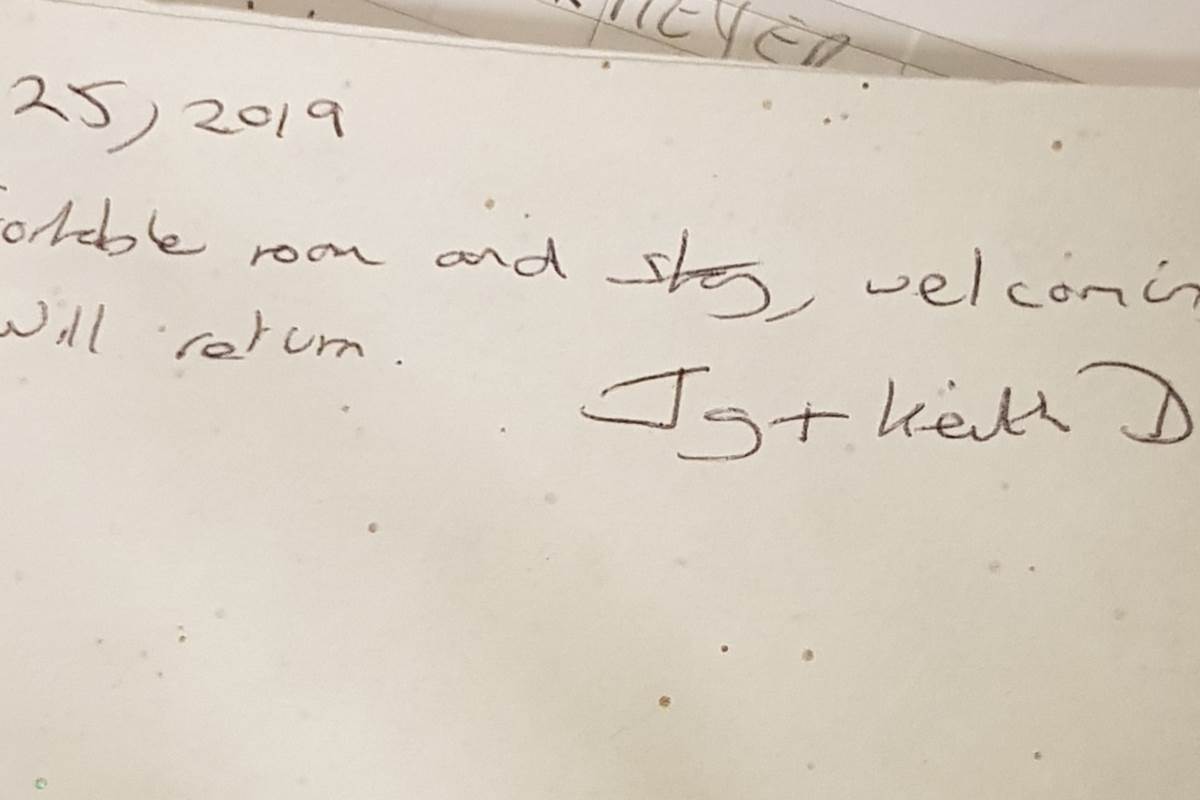 MEYER
25, 2019
ortable room and stay, welcomin
Will return.
Jg + Keith D